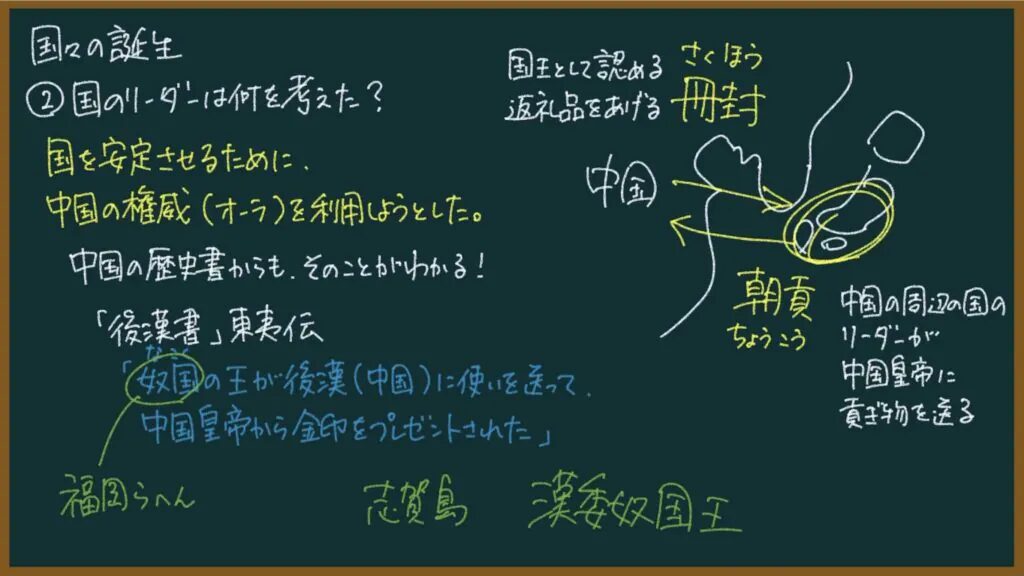 国々の誕生
②国のリーダーは何を考えた？
国を安定させるために、
中国の権威(オーラ)を利用しようとした。
中国の歴史書からも、そのことがわかる！
「後漢書」東夷伝
なこく
「奴国の王が後漢(中国)に使いを送って、
中国皇帝から金印をプレゼントされた」
福岡らへん
志賀島
漢委奴国王
国王として認める
返礼品をあげる
さくほう
冊封
中国
朝貢
ちょうこう
中国の周辺の国の
リーダーが
中国皇帝に
貢ぎ物を送る